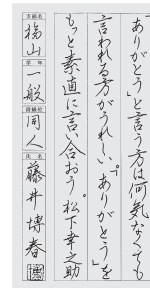 「ありがとう」と言う方は何気なくても
言われる方がうれしい、「ありがとう」を
もっと素直に言い合おう。松下幸之助
支部名
楊山
学年
一般
段級位
同人
氏名
藤井博春